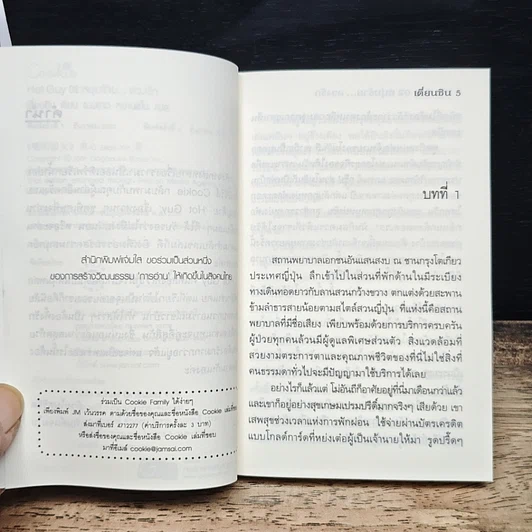 สำนักพิมพ์แจ่มใส ขอร่วมเป็นส่วนหนึ่ง
ของการสร้างวัฒนธรรม 'การอ่าน' ให้เกิดขึ้นในสังคมไทย
ร่วมเป็น Cookie Family ได้ง่ายๆ
เพียงพิมพ์ JM เว้นวรรค ตามด้วยชื่อของคุณและชื่อหนังสือ Cookie เล่มที่ชอบ
ส่งมาที่เบอร์ 4712277 (ค่าบริการครั้งละ 3 บาท)
หรือส่งชื่อของคุณและชื่อหนังสือ Cookie เล่มที่ชอบ
มาที่อีเมล์ cookie@jamsai.com
เตี่ยนซิน 5
บทที่ 1
สถานพยาบาลเอกชนอันแสนสงบ ณ ชานกรุงโตเกียว
ประเทศญี่ปุ่น ลึกเข้าไปในส่วนที่พักด้านในมีระเบียง
ทางเดินทอดยาวกับลานสวนกว้างขวาง ตกแต่งด้วยสะพาน
ข้ามลำธารสายน้อยตามสไตล์สวนญี่ปุ่น ที่แห่งนี้คือสถาน
พยาบาลที่มีชื่อเสียง เพียบพร้อมด้วยการบริการครบครัน
ผู้ป่วยทุกคนล้วนมีผู้ดูแลพิเศษส่วนตัว สิ่งแวดล้อมที่
สวยงามตระการตาและคุณภาพชีวิตของที่นี่ไม่ใช่สิ่งที่
คนธรรมดาทั่วไปจะมีปัญญามาใช้บริการได้เลย
อย่างไรก็แล้วแต่ โม่อันถีก็อาศัยอยู่ที่นี่มาเดือนกว่าแล้ว
และเขาก็อยู่อย่างสุขเกษมเปรมปรีดิ์มากจริงๆ เสียด้วย เขา
เสพสุขช่วงเวลาแห่งการพักผ่อน ใช้จ่ายผ่านบัตรเครดิต
แบบโกลด์การ์ดที่หย่งเต๋อผู้เป็นเจ้านายให้มา รูดปรี๊ดๆ